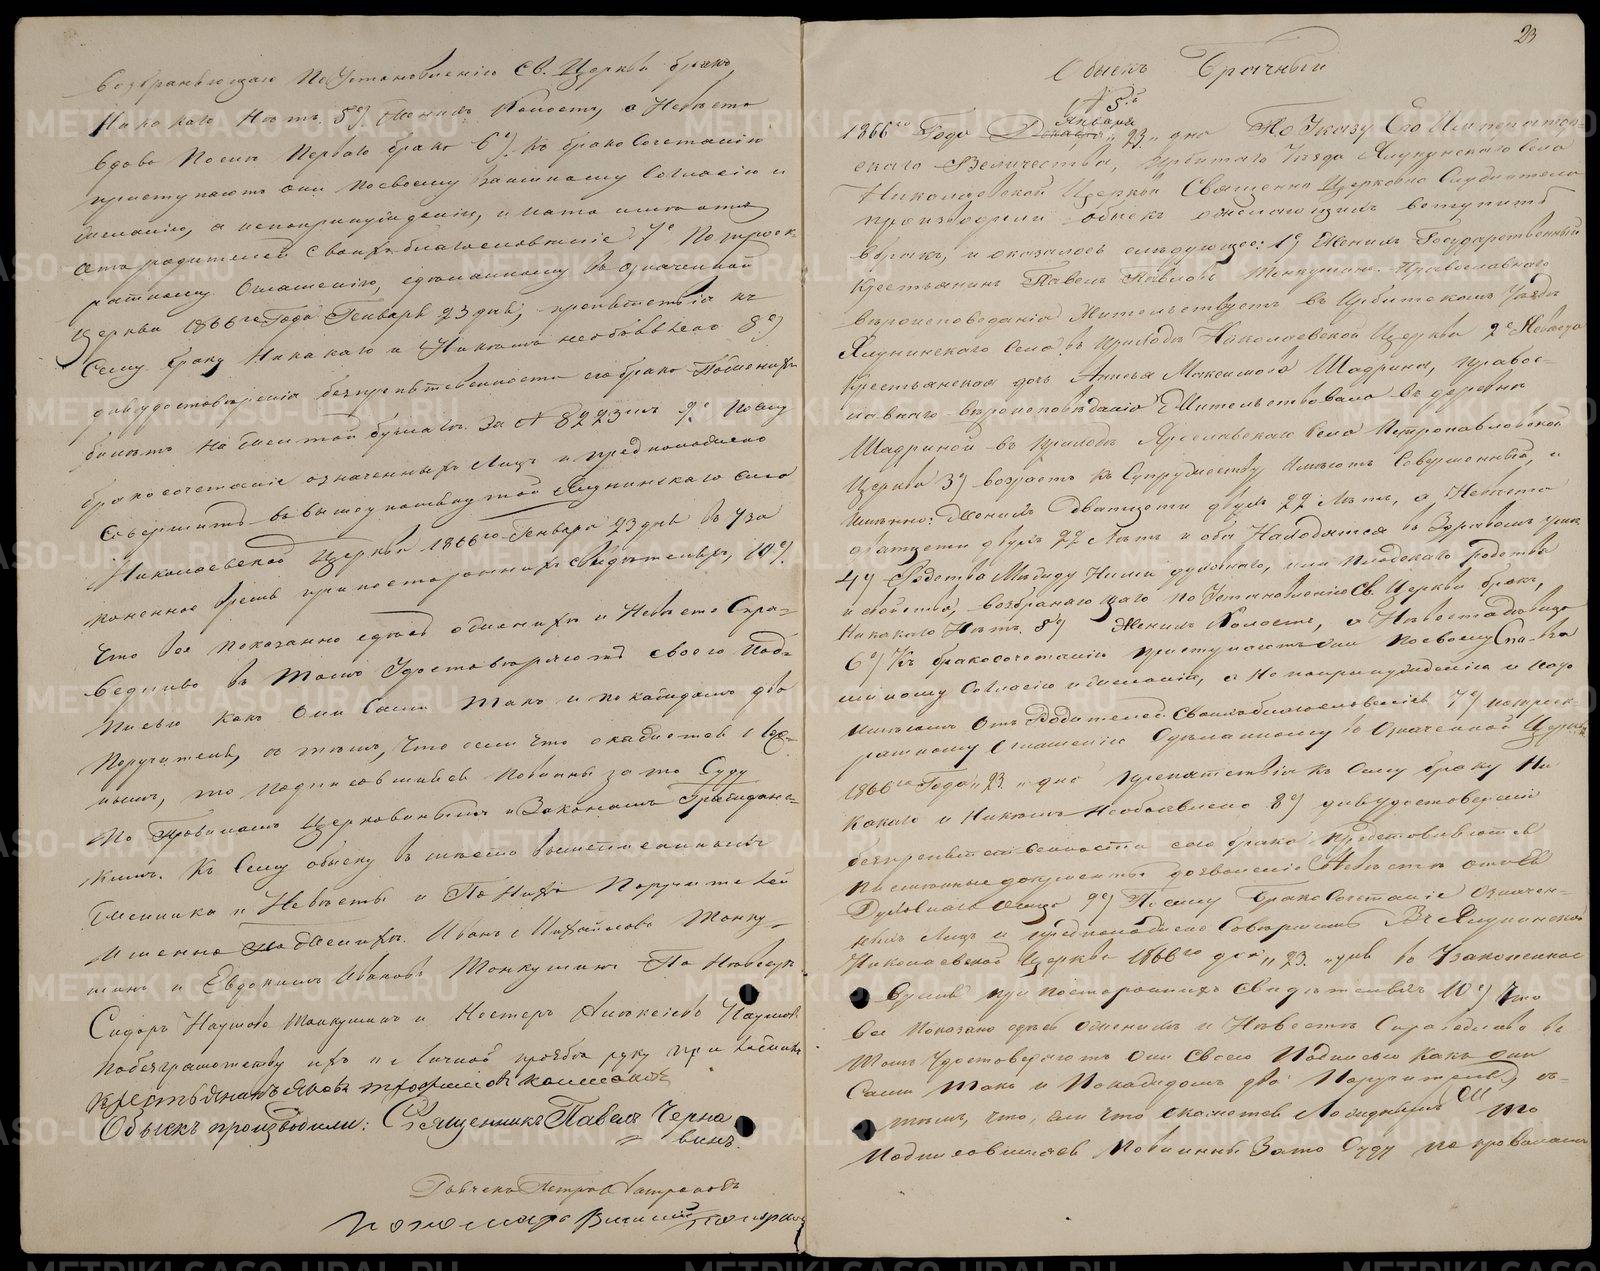 возбраняющаго по Установленію Св. Церкви бракъ,
Никакаго Нѣтъ. 5е) Женихъ Холостъ, а Невѣста
вдова Послѣ Перваго брака 6е). Къ бракосочетанію
приступаютъ они по своему взаимному Согласію и
желанію, а непопринужденію, и на то имѣютъ
отъ родителей своихъ благословеніе 7е По троек-
ратному Оглашенію, сдѣланному въ означенной
Церкви 1866го Года Генваря 23 дня, препятствія къ
Сему браку Никакаго и Никѣмъ необъявлено 8е)
для удостовѣренія безпрепятственности сего брака
билетъ на бумагѣ За № 8223мъ 9е По сему
бракосочетаніе означенныхъ Лицъ и предположено
Совершить въ вышеупомянутой Ялунинскаго села
Николаевской Церкви 1866го Генваря 23 дня въ уза-
коненное время при постороннихъ свидѣтеляхъ, 10е).
Что все показанно здѣсь о женихѣ и Невѣстѣ Спра-
ведливо въ томъ Удостовѣряютъ своею под-
писью какъ Они Сами Такъ и по каждомъ два
Поручителя, съ тѣмъ, Что если что окажется Лож-
нымъ, то подписавшійся повинны за то Суду
По Правиламъ Церковнымъ и Законамъ Граждан-
скимъ. Къ Сему обыску въ мѣсто
Жениха и Невѣсты и По Нихъ Поручителей
Именно По Женихѣ. Иванъ Михайловъ Манку-
шинъ и Евдокимъ Ивановъ Манкушинъ По Невѣстѣ
Сидоръ Наумовъ Манкушинъ и Нестеръ Алексѣевъ
по безграмотству ихъ и личной прозьбѣ руку приложилъ
крестьянинъ Яковъ Трофимовъ
Обыскъ производили: Священникъ Павелъ Черна
винъ.
Петръ
пономарь
23
Обыскъ Брачный
№ 5.й
Января
1866го Года 23 дня По Указу Его Император-
скаго Величества, Ирбитскаго Уѣзда Ялунинскаго Села
Николаевской Церкви Священно Церковно Служители
производили обыскъ о желающихъ вступить
въ бракъ, и оказалось слѣдующее: 1е) Женихъ Государственный
Крестьянинъ Павелъ Павловъ Манкушинъ. Православнаго
вѣроисповеданія Жительствуетъ въ Ирбитскомъ Уѣздѣ
Ялунинскаго Села въ приходѣ Николаевской Церкви 2е Невѣста
Крестьянская дочь Анисья Максимова Шадрина, Правос-
лавнаго вѣроисповѣданія Жительствовала въ деревнѣ
Шадриной въ приходѣ Ярославскаго Села Петропавловской
Церкви 3е) возрастъ къ Супружеству Имѣютъ Совершенный, и
именно: Женихъ двадцати двухъ 22 Лѣтъ, а Невѣста
двадцати двухъ 22 Лѣтъ и оба Находятся въ Здравомъ умѣ
4е) Родства Между Ними духовнаго, или плотскаго родства
и свойства, возбраняющаго по Установленію Св. Церкви бракъ,
Никакаго Нѣтъ. 5е) Женихъ Холостъ, а Невѣста дѣвица
6е) Къ бракосочетанію приступаютъ они по своему
взаимному Согласію и желанію, а Не по принужденію и на то
имѣютъ Отъ Родителей Своихъ благословеніе 7е) по троек-
ратному Оглашенію Сдѣланному въ Означенной Церкви
1866го Года 23 дня препятствія къ Сему браку Ни
какаго и Никѣмъ Необъявлено 8е) для удостоверенія
безпрепятственности сего брака представляются
письменные документы дозволеніе Невѣстѣ отъ
Духовнаго Отца 9е) По сему Бракосочетаніе Означен-
ныхъ Лицъ и предположено Совершить Въ Ялунинской
Николаевской Церкви 1866го 23 дня въ Узаконенное
Время при постороннихъ Свидѣтеляхъ 10е) Что
все Показано здѣсь О женихѣ и Невѣстѣ Справедливо въ
томъ Удостоверяютъ Они Своею Подписью Какъ они
Сами Такъ и По каждомъ два Поручителя, съ-
тѣмъ, что, если что окажется Ложнымъ То
Подписавшіяся Повинны За то Суду по правиламъ